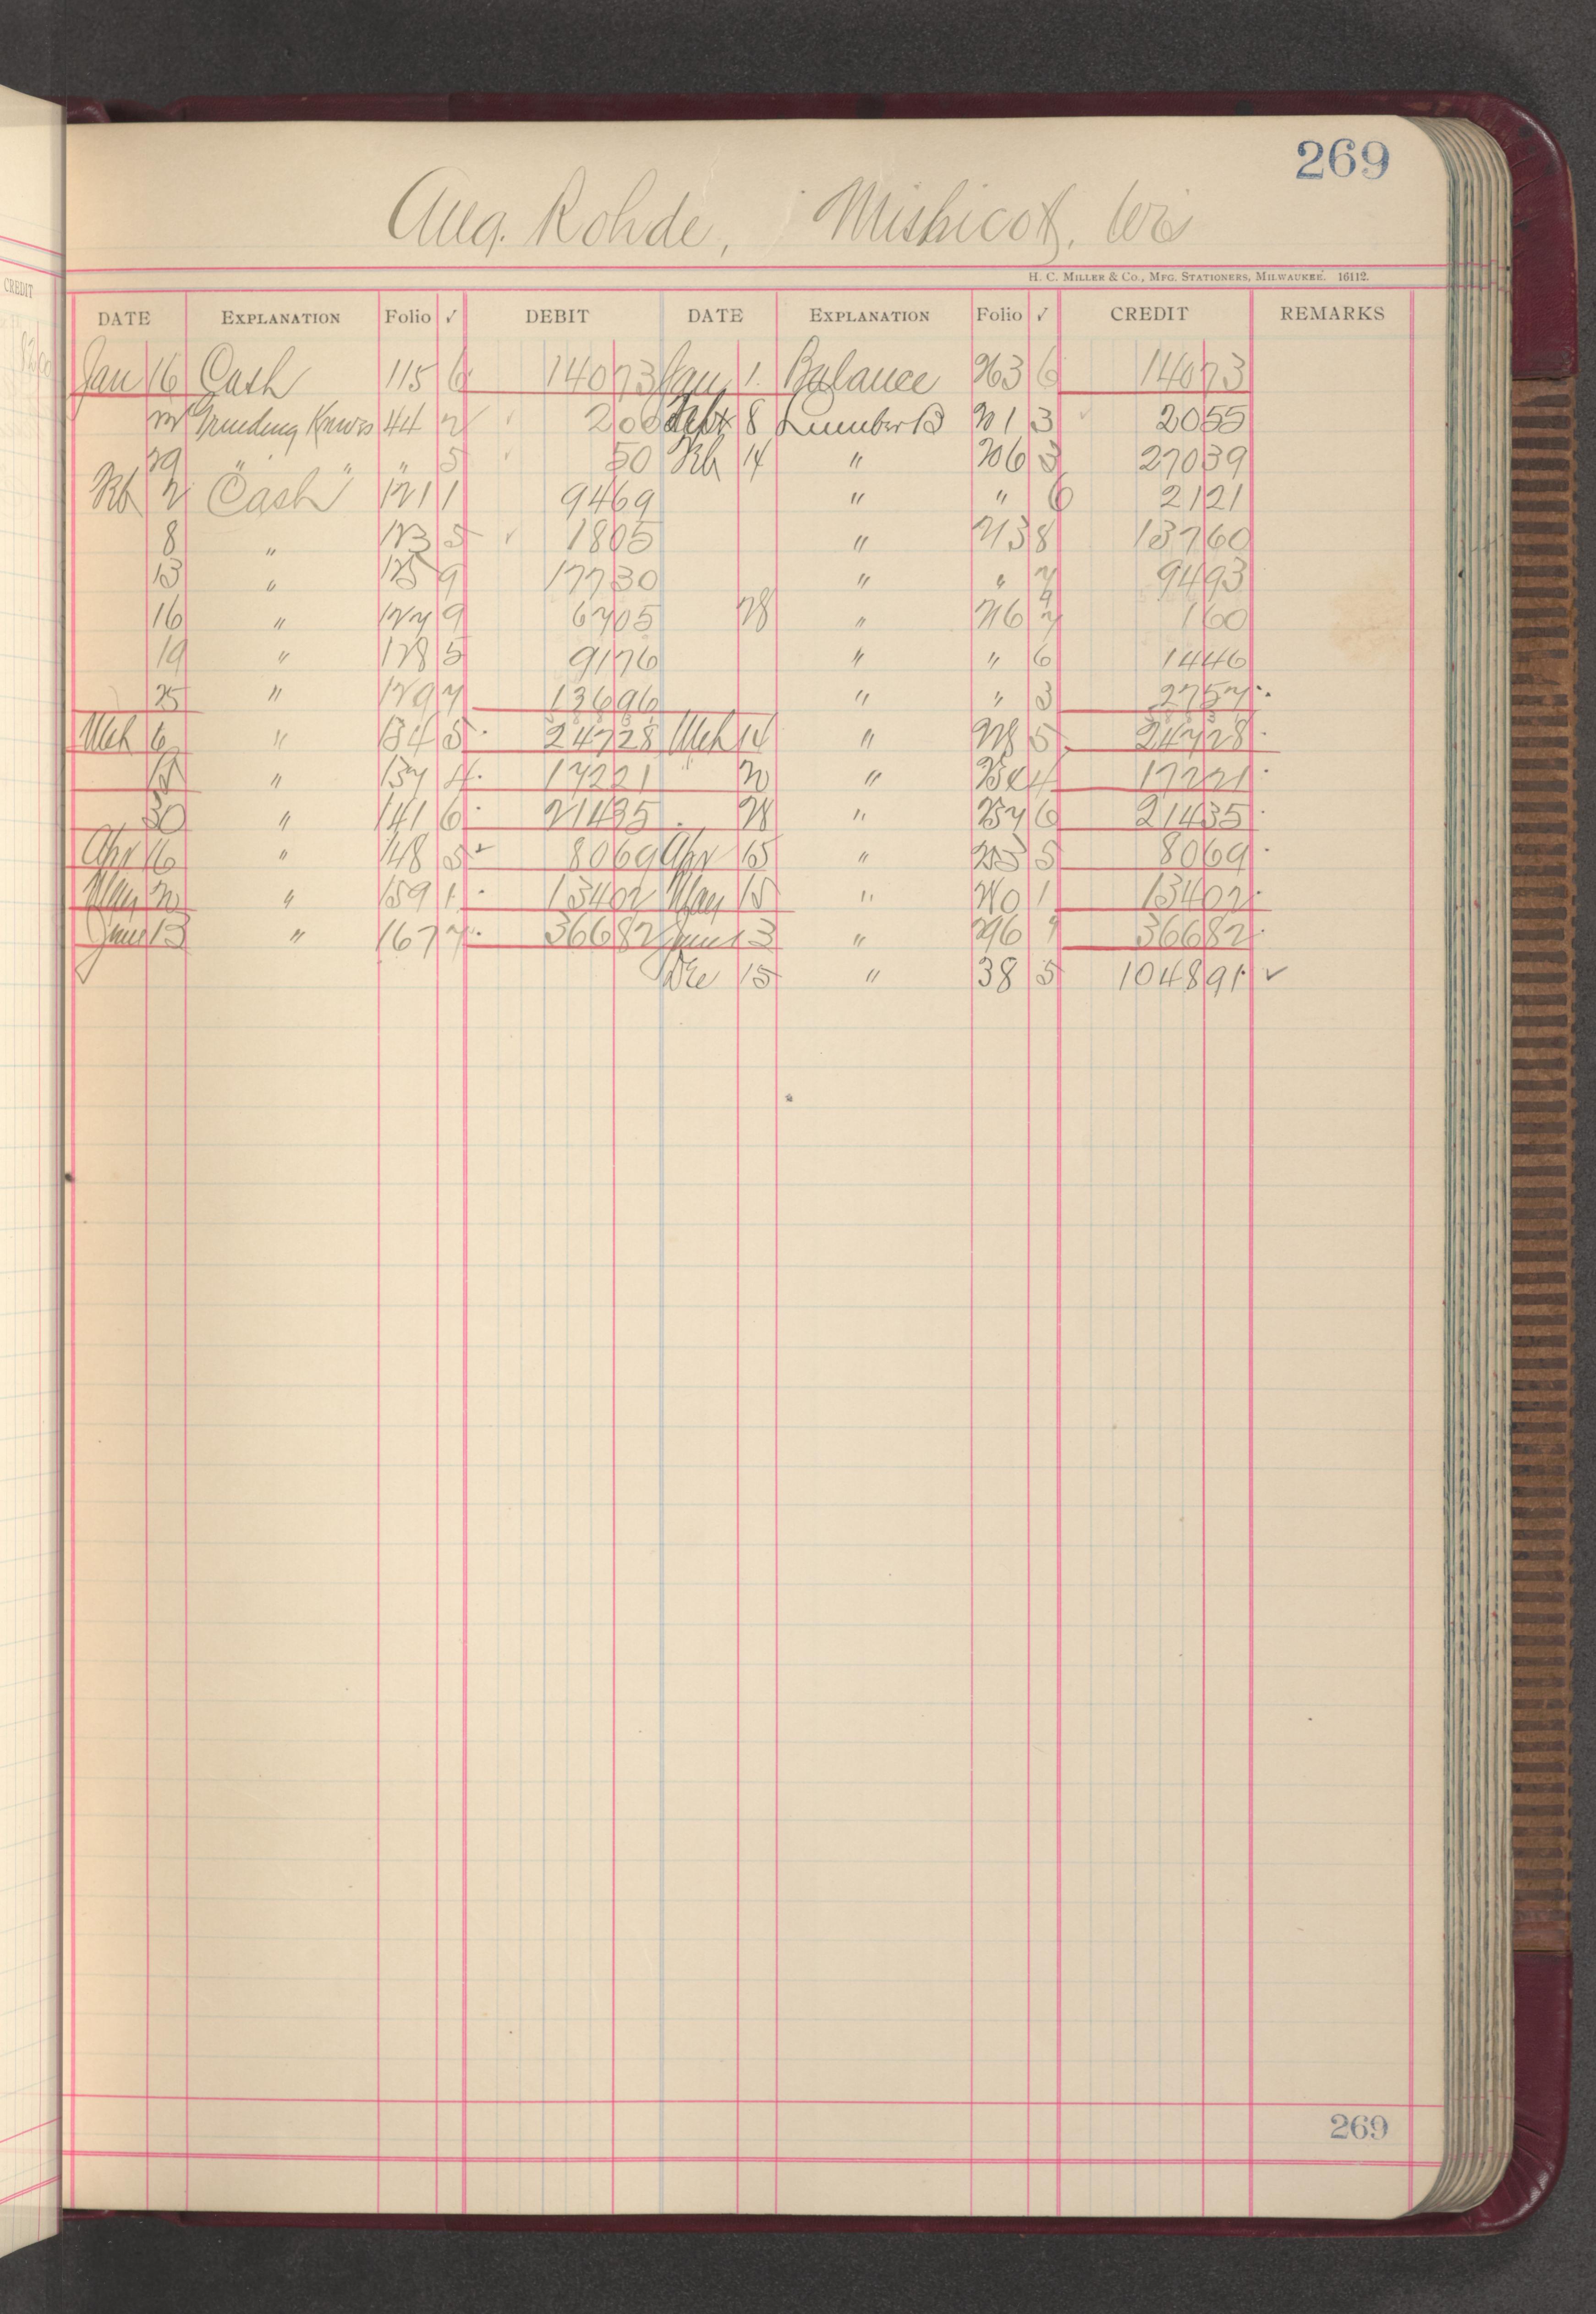 269
Aug. Rohde, Mishicott, Wis
H. C. Miller & Co., Mfg. Stationers, Milwaukee. 16112.
DATE EXPLANATION Folio ✓ DEBIT DATE EXPLANATION Folio ✓ CREDIT REMARKS
Jan 16 Cash 115 6 140 73 Jan 1 Balance 263 6 140 73
Grinding Knives 44 2 ✓ 2 00 8 Lumber B 201 3 ✓ 20 55
29 " " " 5 ✓ 50 Feb 14 " 206 3 270 39
Feb 2 Cash 121 1 94 69 " " 6 21 21
8 " 123 5 ✓ 18 05 " 213 8 137 60
13 " 125 9 177 30 " " 7 94 93
16 " 127 9 67 05 28 " 216 1 60
19 " 128 5 91 76 " " 6 14 46
25 " 129 7 136 96 " " 3 27 57
Mch 6 " 134 5 247 28 Mch 14 " 228 5 247 28
" 137 4 172 21 20 " 4 172 21
30 " 141 6 214 35 28 " 237 6 214 35
Apr 16 " 148 5 80 69 Apr 15 " 5 80 69
May 20 " 159 1 134 02 May 15 " 1 134 02
June 13 " 167 7 366 82 June 13 " 296 9 366 82
Dec 15 " 38 5 1048 91 ✓
269
CREDIT